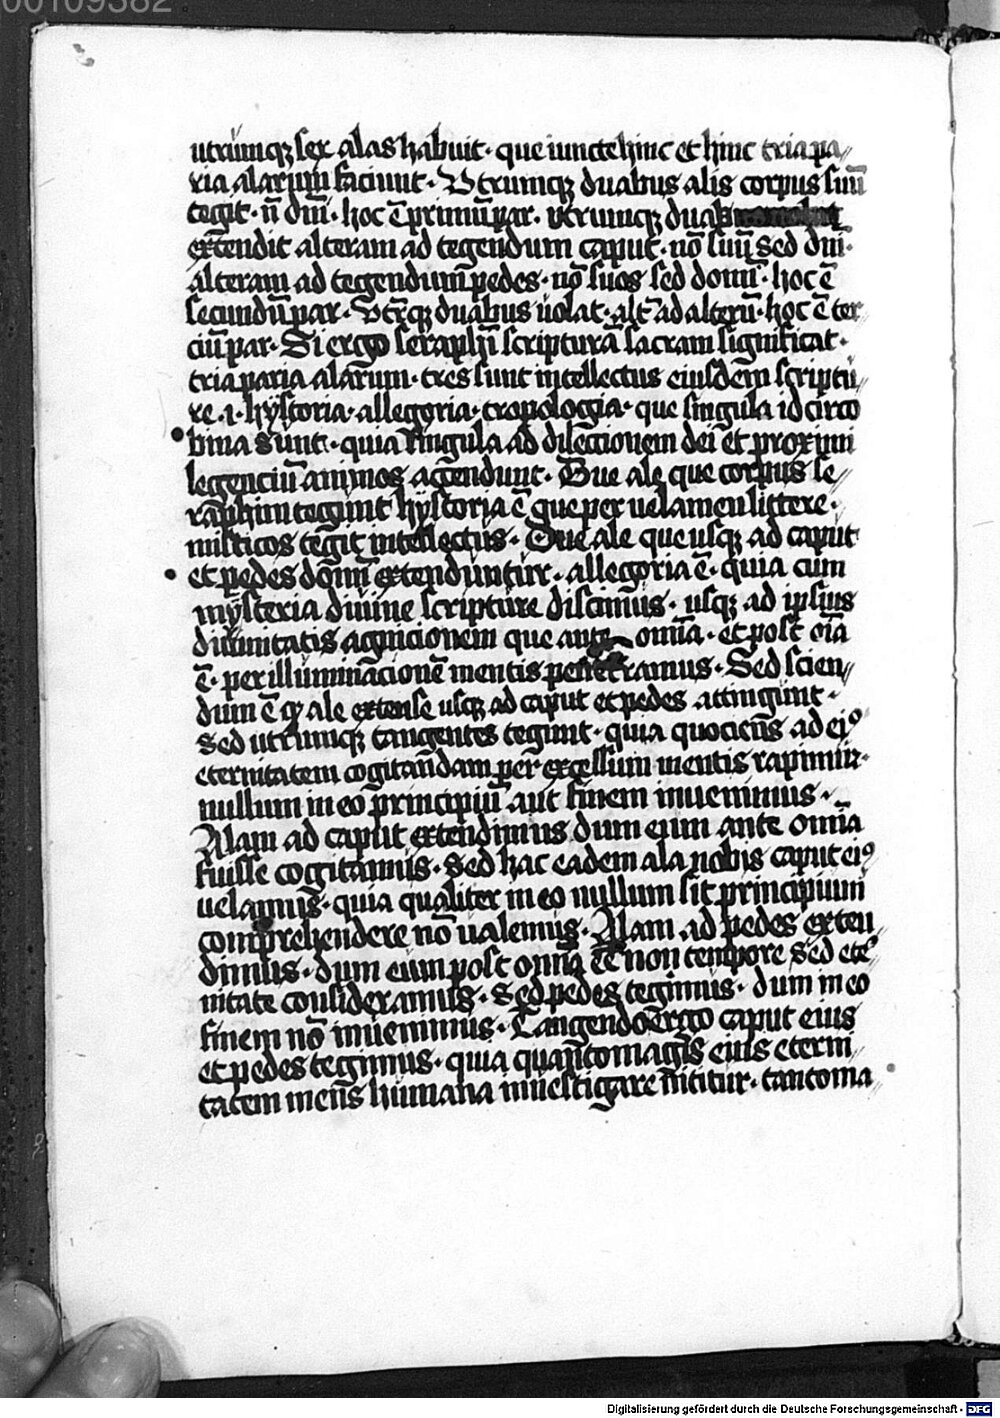 00109382
utrumq; sex alas habuit · que iuncte hinc et hinc tria pa//
ria alarum faciunt · Vtrumq; duabus alis corpus suū
tegit · n̄ dn̄i · hoc ē primū par · utrumq; duab
extendit alteram ad tegendum caput · nō suū sed dn̄i ·
alteram ad tegendum pedes · nō suos sed domī · hoc ē
secundū par · Vtrq; duabus uolat · alt̄ ad alterū · hoc ē ter
ciū par · Si ergo seraphī scripturā sacram significat ·
tria paria alarum · tres sunt intellectus eiusdem scriptu//
re · i · hystoria · allegoria · tropologia · que singula idcirco
bina sunt · quia singula ad dilectionem dei et proximi
legenciū animos accendunt · Due ale que corpus se//
raphim tegunt hystoria ē que per uelamen littere ·
misticos tegit intellectus · Due ale que usq; ad caput
et pedes domī extenduntur · allegoria ē · quia cum
mysteria diuine scripture discimus · usq; ad ipsius
diuinitatis agnicionem que ante omīa · et post oīa
ē · per illuminacionē mentis penetramus · Sed scien//
dum ē qđ ale extense usq; ad caput et pedes attingunt ·
Sed utrumq; tangentes tegunt · quia quociens ad eiꝰ
eternitatem cogitandam per excessum mentis rapimur ·
nullum in eo principiū aut finem inuenimus ·
Alam ad caput extendimus dum eum ante omīa
fuisse cogitamus · Sed hac eadem ala nobis caput eiꝰ
uelamus · quia qualiter in eo nullum sit principium
comprehendere nō ualemus · Alam ad pedes exten//
dimus · dum eum post omīa eē non tempore sed eteʳ//
nitate consideramus · Sed pedes tegimus · dum in eo
finem nō inuenimus · Tangendo ergo caput eius
et pedes tegimus · quia quanto magis eius eterni//
tatem mens humana inuestigare nititur · tanto ma//
Digitalisierung gefördert durch die Deutsche Forschungsgemeinschaft - DFG